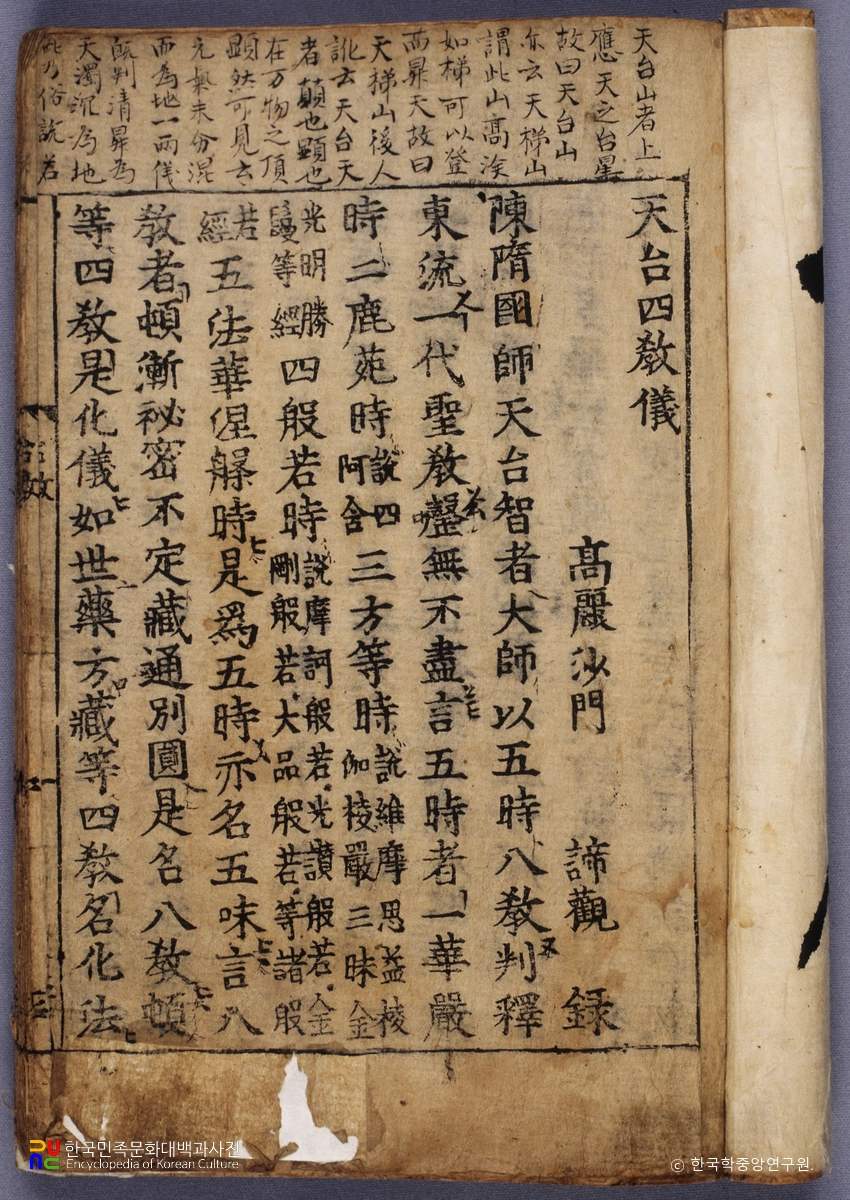 天台山者上
應天之台星
故曰天台山
亦云天梯山
謂此山高
如梯可以登
而昇天故曰
天梯山後人
訛云天台天
者顚也顯也
在万物之頂
顕然可見
元氣未分混
而為地一兩儀
旣判清昇為
天濁沉為地
此乃俗說若
天台四敎儀
高麗沙門 諦觀 録
陳隋國師天台智者大師以五時八敎判釋
東流一代聖敎罄無不盡言五時者一華嚴
時二鹿苑時說四阿含三方等時說維摩思益棱伽棱嚴三昧金
光明勝鬘等經四般若時說摩訶般若光讚般若金剛般若大品般若等諸般
若經五法華涅槃時是爲五時亦名五味言八
敎者頓漸祕密不定藏通別圓是名八敎頓
等四敎是化儀如世藥方藏等四敎名化法
한국민족문화대백과사전
Encyclopedia of Korean Culture
ⓒ 한국학중앙연구원.